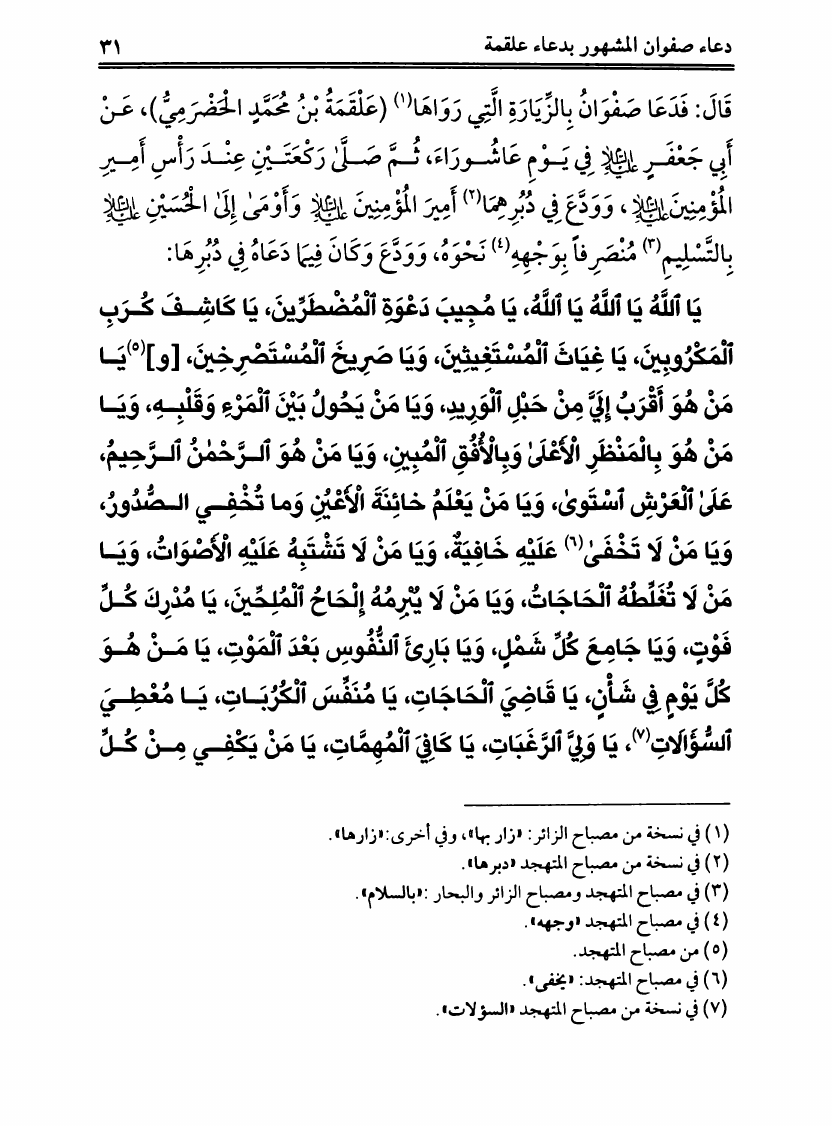 دعاء صفوان المشهور بدعاء علقمة ٣١
قَالَ: فَدَعَا صَفْوَانُ بِالزِّيَارَةِ الَّتِي رَوَاهَا(١) (عَلْقَمَةُ بْنُ مُحَمَّدٍ الْحَضْرَمِيُّ)، عَنْ
أَبِي جَعْفَرٍ عليه السلام فِي يَوْمِ عَاشُورَاءَ، ثُمَّ صَلَّىٰ رَكْعَتَيْنِ عِنْدَ رَأْسِ أَمِيرِ
الْمُؤْمِنِينَ عليه السلام، وَوَدَّعَ فِي دُبُرِهِمَا(٢) أَمِيرَ الْمُؤْمِنِينَ عليه السلام وَأَوْمَىٰ إِلَىٰ الْحُسَيْنِ عليه السلام
بِالتَّسْلِيمِ(٣) مُنْصَرِفاً بِوَجْهِهِ(٤) نَحْوَهُ، وَوَدَّعَ وَكَانَ فِيمَا دَعَاهُ فِي دُبُرِهَا:
يَا ٱللَّهُ يَا ٱللَّهُ يَا ٱللَّهُ، يَا مُجِيبَ دَعْوَةِ ٱلْمُضْطَرِّينَ، يَا كَاشِفَ كُرَبِ
ٱلْمَكْرُوبِينَ، يَا غِيَاثَ ٱلْمُسْتَغِيثِينَ، وَيَا صَرِيخَ ٱلْمُسْتَصْرِخِينَ، [و](٥) يَا
مَنْ هُوَ أَقْرَبُ إِلَيَّ مِنْ حَبْلِ ٱلْوَرِيدِ، وَيَا مَنْ يَحُولُ بَيْنَ ٱلْمَرْءِ وَقَلْبِهِ، وَيَا
مَنْ هُوَ بِالْمَنْظَرِ الْأَعْلَىٰ وَبِالْأُفُقِ ٱلْمُبِينِ، وَيَا مَنْ هُوَ ٱلرَّحْمٰنُ ٱلرَّحِيمُ،
عَلَىٰ ٱلْعَرْشِ ٱسْتَوىٰ، وَيَا مَنْ يَعْلَمُ خائِنَةَ الْأَعْيُنِ وَما تُخْفِي الصُّدُورُ،
وَيَا مَنْ لَا تَخْفَىٰ(٦) عَلَيْهِ خَافِيَةٌ، وَيَا مَنْ لَا تَشْتَبِهُ عَلَيْهِ الْأَصْوَاتُ، وَيَا
مَنْ لَا تُغَلِّطُهُ ٱلْحَاجَاتُ، وَيَا مَنْ لَا يُبْرِمُهُ إِلْحَاحُ ٱلْمُلِحِّينَ، يَا مُدْرِكَ كُلِّ
فَوْتٍ، وَيَا جَامِعَ كُلِّ شَمْلٍ، وَيَا بَارِئَ ٱلنُّفُوسِ بَعْدَ ٱلْمَوْتِ، يَا مَنْ هُوَ
كُلَّ يَوْمٍ فِي شَأْنٍ، يَا قَاضِيَ ٱلْحَاجَاتِ، يَا مُنَفِّسَ ٱلْكُرُبَاتِ، يَا مُعْطِيَ
ٱلسُّؤَالَاتِ(٧)، يَا وَلِيَّ ٱلرَّغَبَاتِ، يَا كَافِيَ ٱلْمُهِمَّاتِ، يَا مَنْ يَكْفِي مِنْ كُلِّ
(١) في نسخة من مصباح الزائر: «زار بها»، وفي أخرى: «زارها».
(٢) في نسخة من مصباح المتهجد «دبرها».
(٣) في مصباح المتهجد ومصباح الزائر والبحار: «بالسلام».
(٤) في مصباح المتهجد «وجهه».
(٥) من مصباح المتهجد.
(٦) في مصباح المتهجد: «يخفى».
(٧) في نسخة من مصباح المتهجد «السؤلات».